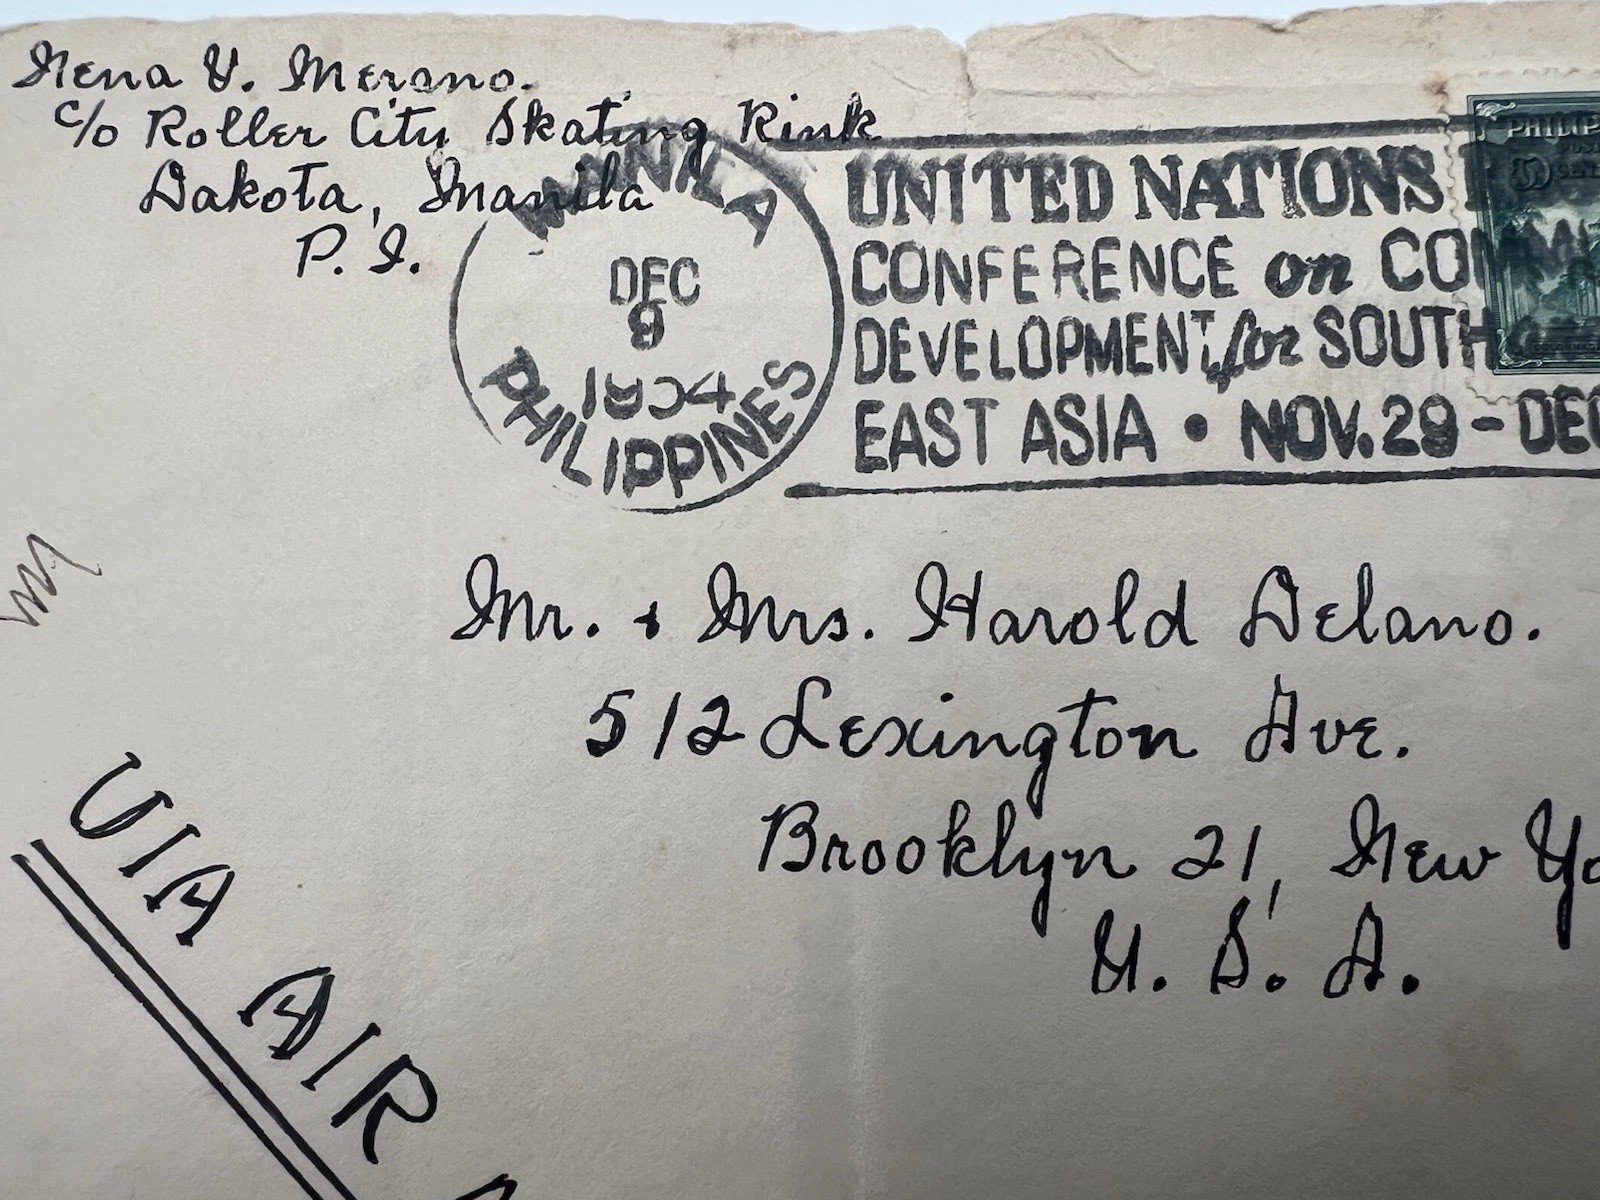 Nena V. Merano.
c/o Roller City Skating Rink
Dakota, Manila
P. I.
MANILA
DEC
6
1954
PHILIPPINES
UNITED NATIONS
CONFERENCE on COM
DEVELOPMENT for SOUTH
EAST ASIA • NOV. 29 - DEC
PHILIPP
50
Mr. + Mrs. Harold Delano.
512 Lexington Ave.
Brooklyn 21, New Yo
U. S. A.
VIA AIR